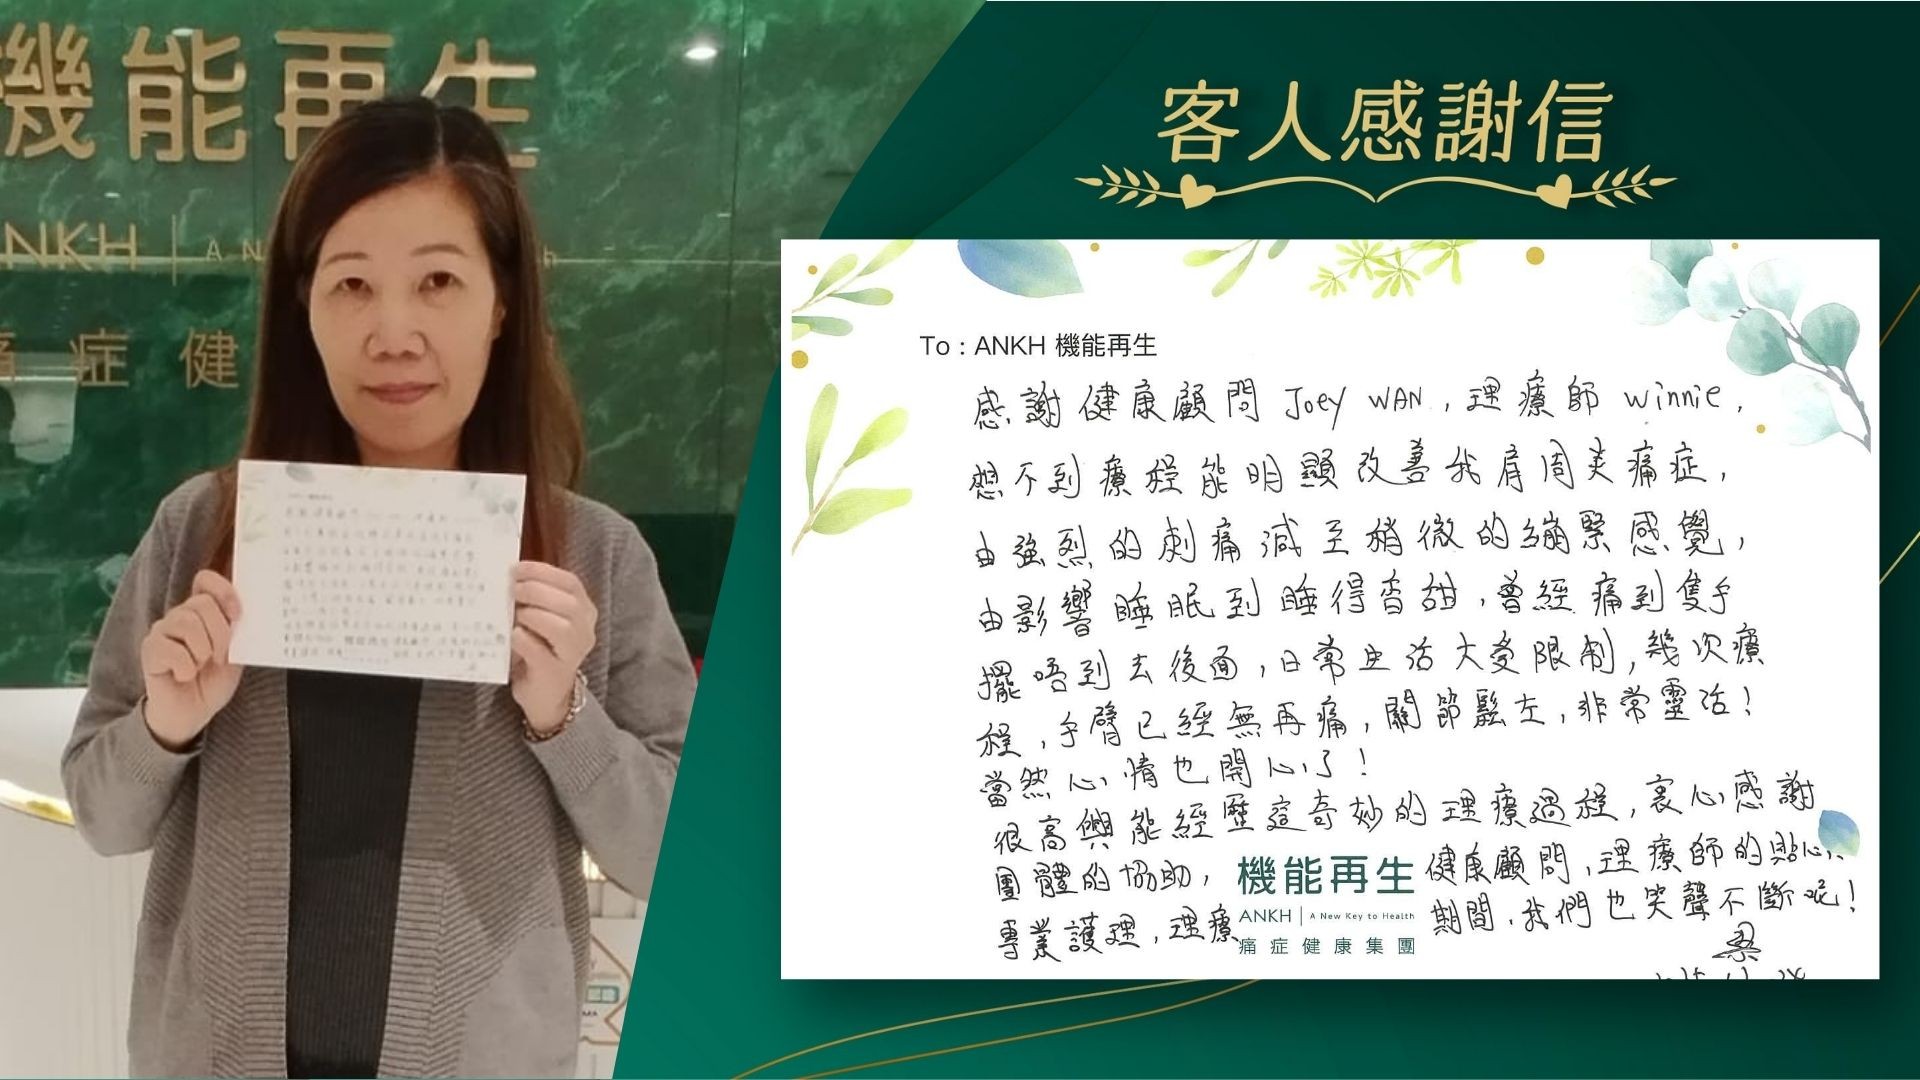 機能再生
ANKH
痛症健
客人感謝信
To : ANKH 機能再生
感謝健康顧問 Joey WAN，理療師 winnie，
想不到療程能明顯改善我肩周炎痛症，
由強烈的刺痛減至稍微的繃緊感覺，
由影響睡眠到睡得香甜，曾經痛到隻手
擺唔到去後面，日常生活大受限制，幾次療
程，手臂已經無再痛，關節鬆左，非常靈活！
當然心情也開心了！
很高興能經歷這奇妙的理療過程，衷心感謝
團體的協助，機能再生健康顧問，理療師的貼心
專業護理，理療期間，我們也笑聲不斷呢！
ANKH | A New Key to Health
痛症健康集團